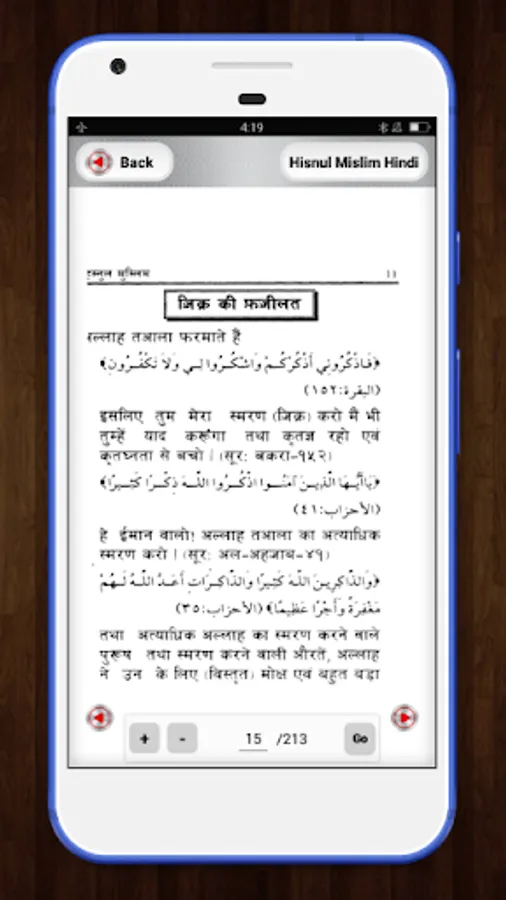 4:19
Back
Hisnul Mislim Hindi
हिस्नुल मुस्लिम 11
जिक्र की फ़जीलत
रल्लाह तआला फरमाते हैं
﴿فَاذْكُرُونِي أَذْكُرْكُمْ وَاشْكُرُوا لِي وَلَا تَكْفُرُونِ﴾
(البقرة:١٥٢)
इसलिए तुम मेरा स्मरण (जिक्र) करो मैं भी
तुम्हें याद करूंगा तथा कृतज्ञ रहो एवं
कृतघ्नता से बचो। (सूरः बकरा-१५२)
﴿يَاأَيُّهَا الَّذِينَ آمَنُوا اذْكُرُوا اللَّهَ ذِكْرًا كَثِيرًا﴾
(الأحزاب:٤١)
हे ईमान वालो! अल्लाह तआला का अत्याधिक
स्मरण करो। (सूरः अल-अहजाब-४१)
﴿وَالذَّاكِرِينَ اللَّهَ كَثِيرًا وَالذَّاكِرَاتِ أَعَدَّ اللَّهُ لَهُمْ
مَغْفِرَةً وَأَجْرًا عَظِيمًا﴾ (الأحزاب:٣٥)
तथा अत्याधिक अल्लाह का स्मरण करने वाले
पुरूष तथा स्मरण करने वाली औरते, अल्लाह
ने उन के लिए (विस्तृत) मोक्ष एवं बहुत बड़ा
+ - 15 /213 Go